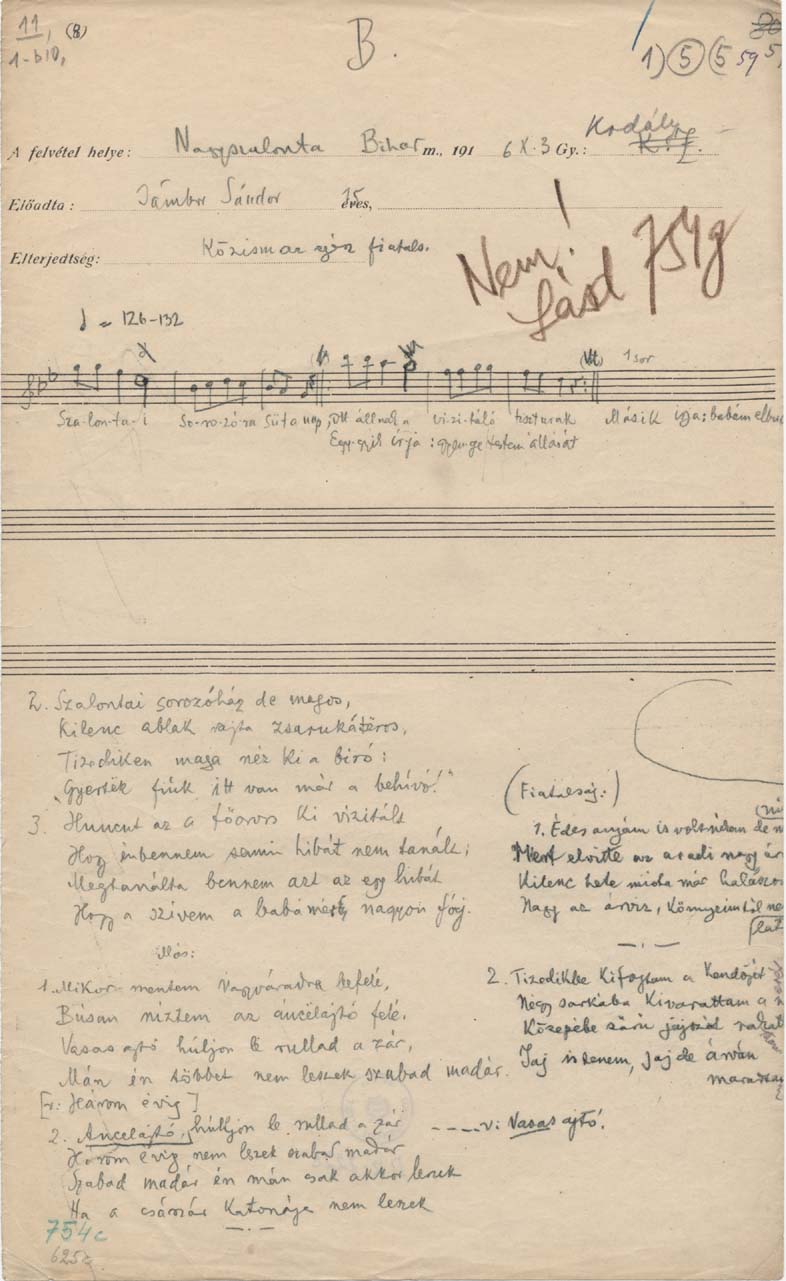 11, (8)
1-b10,
B.
1) 5 (5 59 5
A felvétel helye: Nagyszalonta Bihar m., 191 6 X. 3 Gy.: Kodály
Előadta: Jámbor Sándor 15 éves,
Elterjedtség: Közism az egész fiatals.
Nem!
Lásd 754g
= 126-132
1 sor
Sza-lon-ta-i so-ro-zó-ra süt a nap, Ott állnak a vizi-táló tiszturak Másik írja: babám
Egyegyik írja: gyenge testem állását
2. Szalontai sorozóház de magos,
Kilenc ablak rajta
Tizediken maga néz ki a bíró:
"Gyertek fiúk itt van már a behívó!"
3. Huncut az a főorvos ki vizitált
Hogy énbennem semmi hibát nem tanált;
Megtanálta bennem azt az egy hibát
Hogy a szívem a babámért nagyon fáj.
más:
1. Mikor mentem Nagyváradra befelé,
Búsan néztem az áncélajtó felé.
Vasas ajtó húljon le rullad a zár,
Mán én többet nem leszek szabad madár.
[v: Három évig]
2. Ancélajtó, húlljon le rullad a zár ----v: Vasas ajtó.
Három évig nem leszek szabad madár
Szabad madár én mán csak akkor leszek
Ha a császár katonája nem leszek
754c
625c
(Fiatalság:)
1. Édes anyám is volt nékem de
Mert elvitte az aradi nagy
Kilenc hete mióta már
Nagy az árvíz, könyeimtől
2. Tizedikbe kifogtam a kendőjét
Négy sarkába kivarattam a
Közepébe sűrű
Jaj istenem, jaj de árván